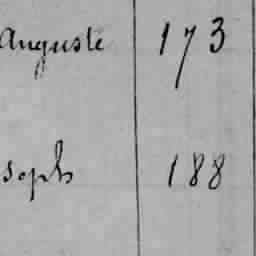 Auguste 173
soph 188